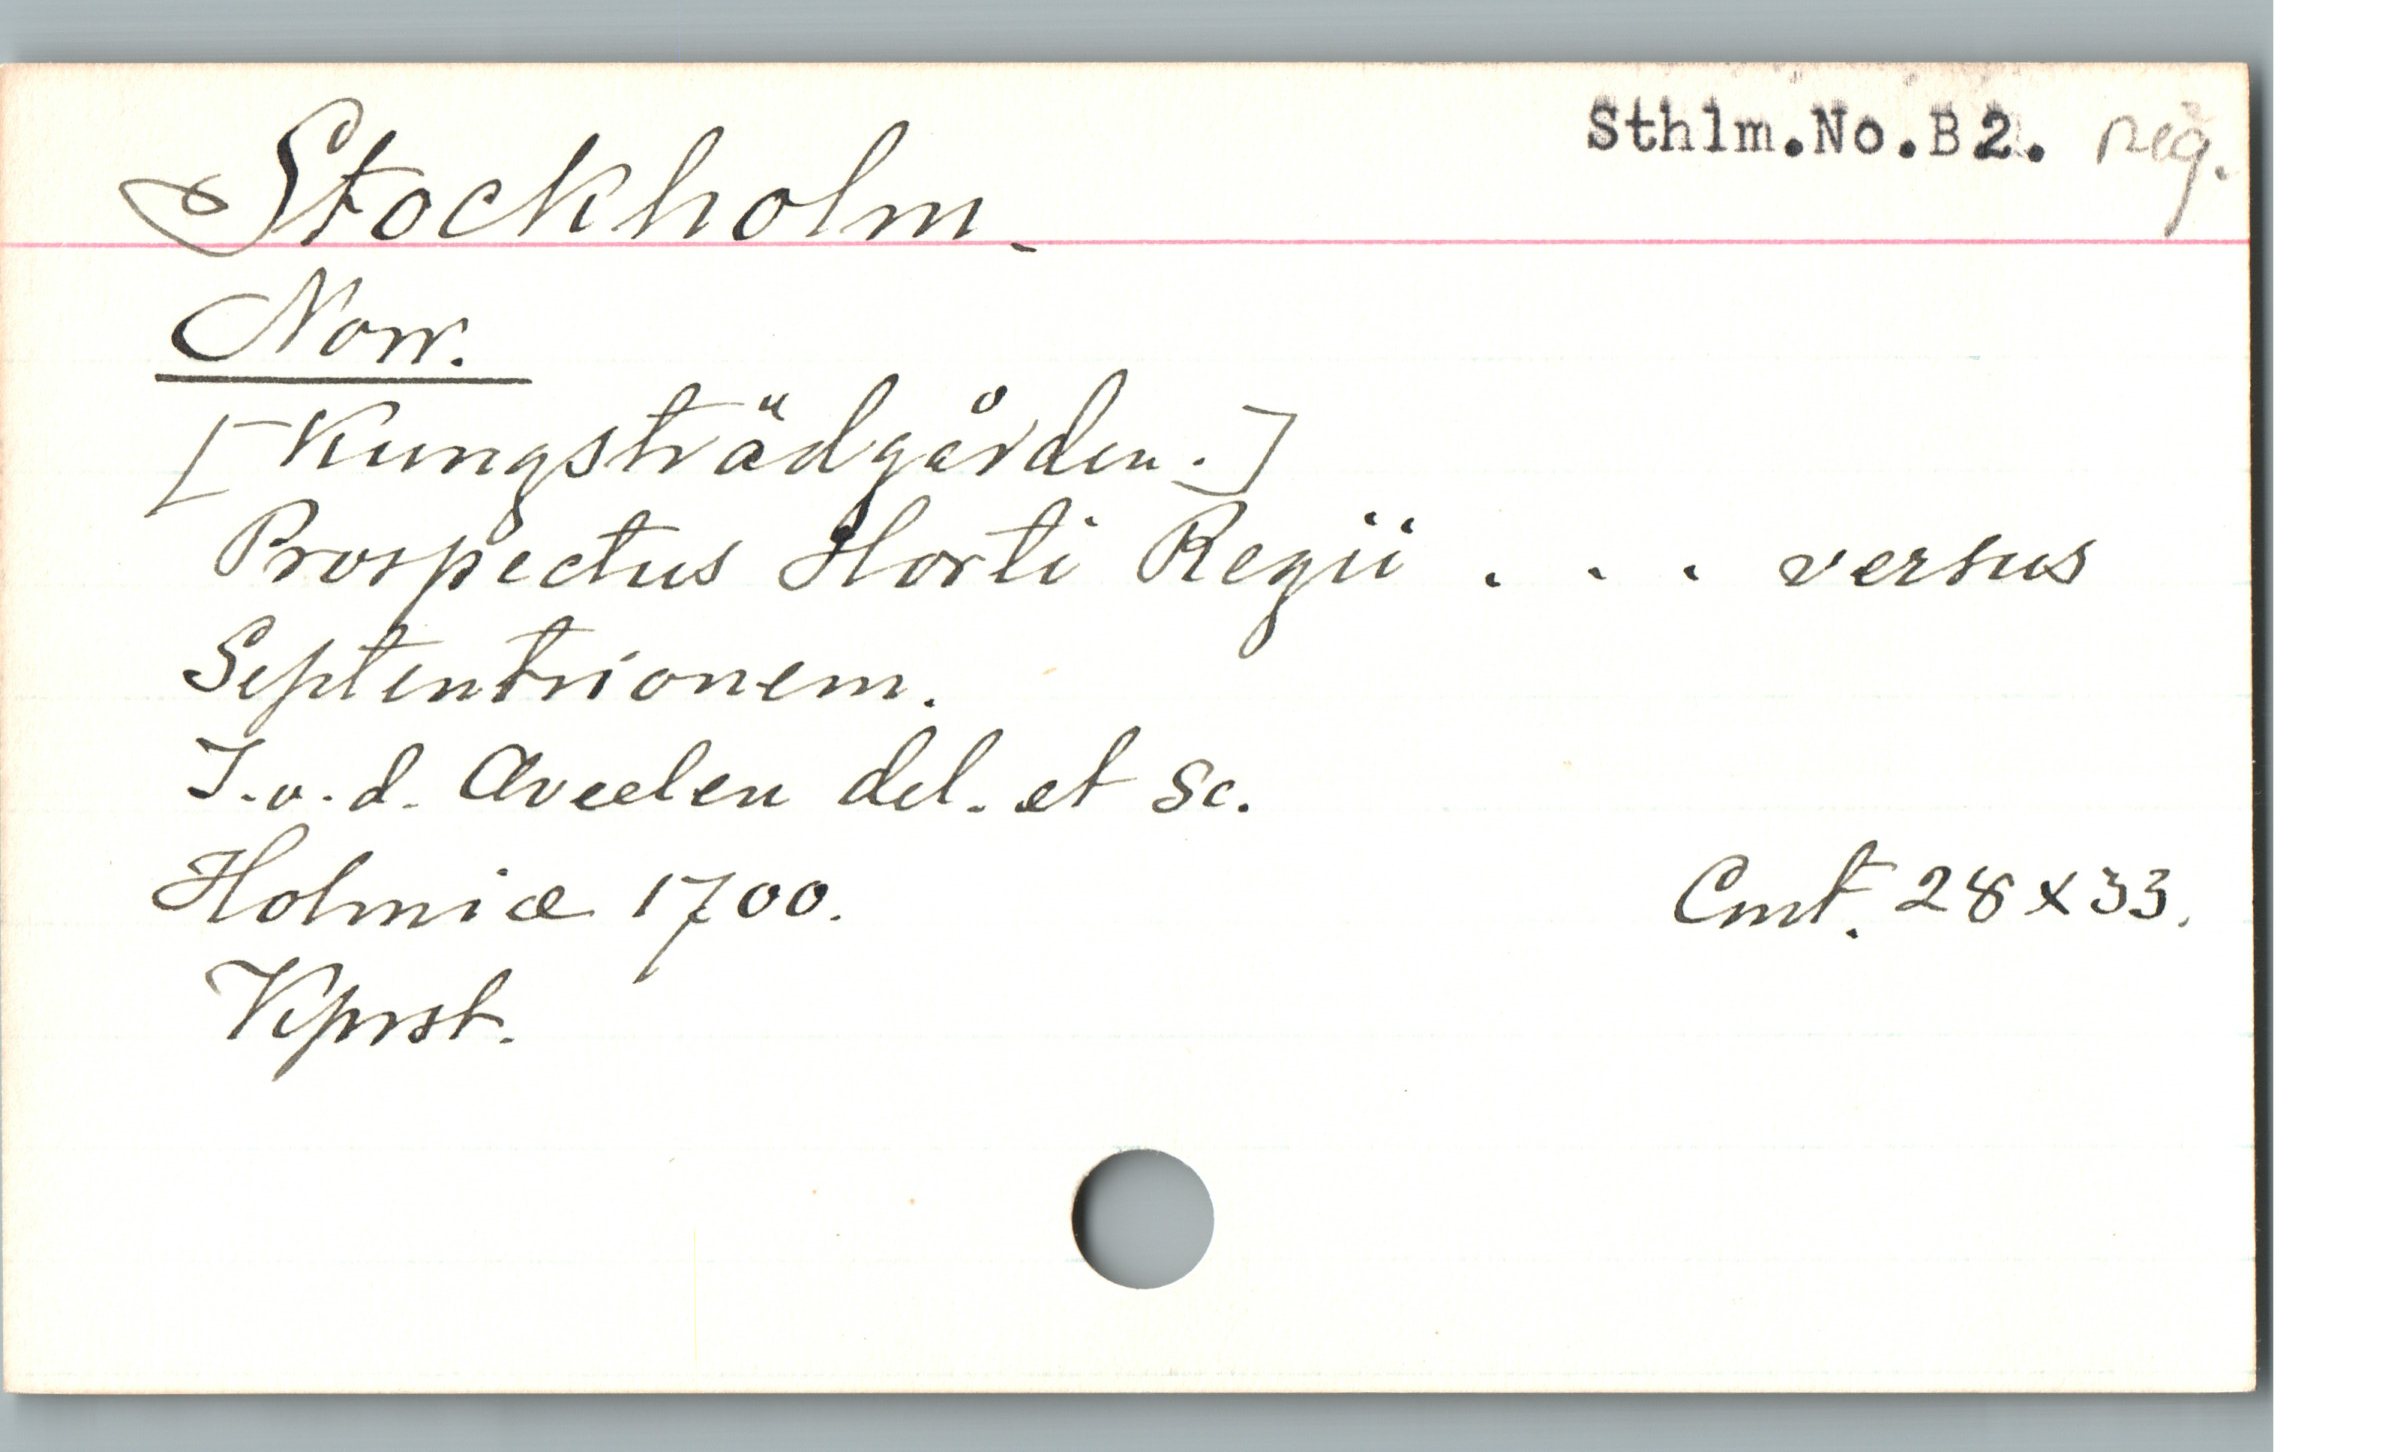 Sthlm.No.B2. neg.
Stockholm.
Norr.
[Kungsträdgården.]
Prospectus Horti Regii . . . versus
Septentrionem.
J.v.d. Aveelen del. et sc.
Holmiæ 1700. Cmt. 28 x 33.
Kprst.